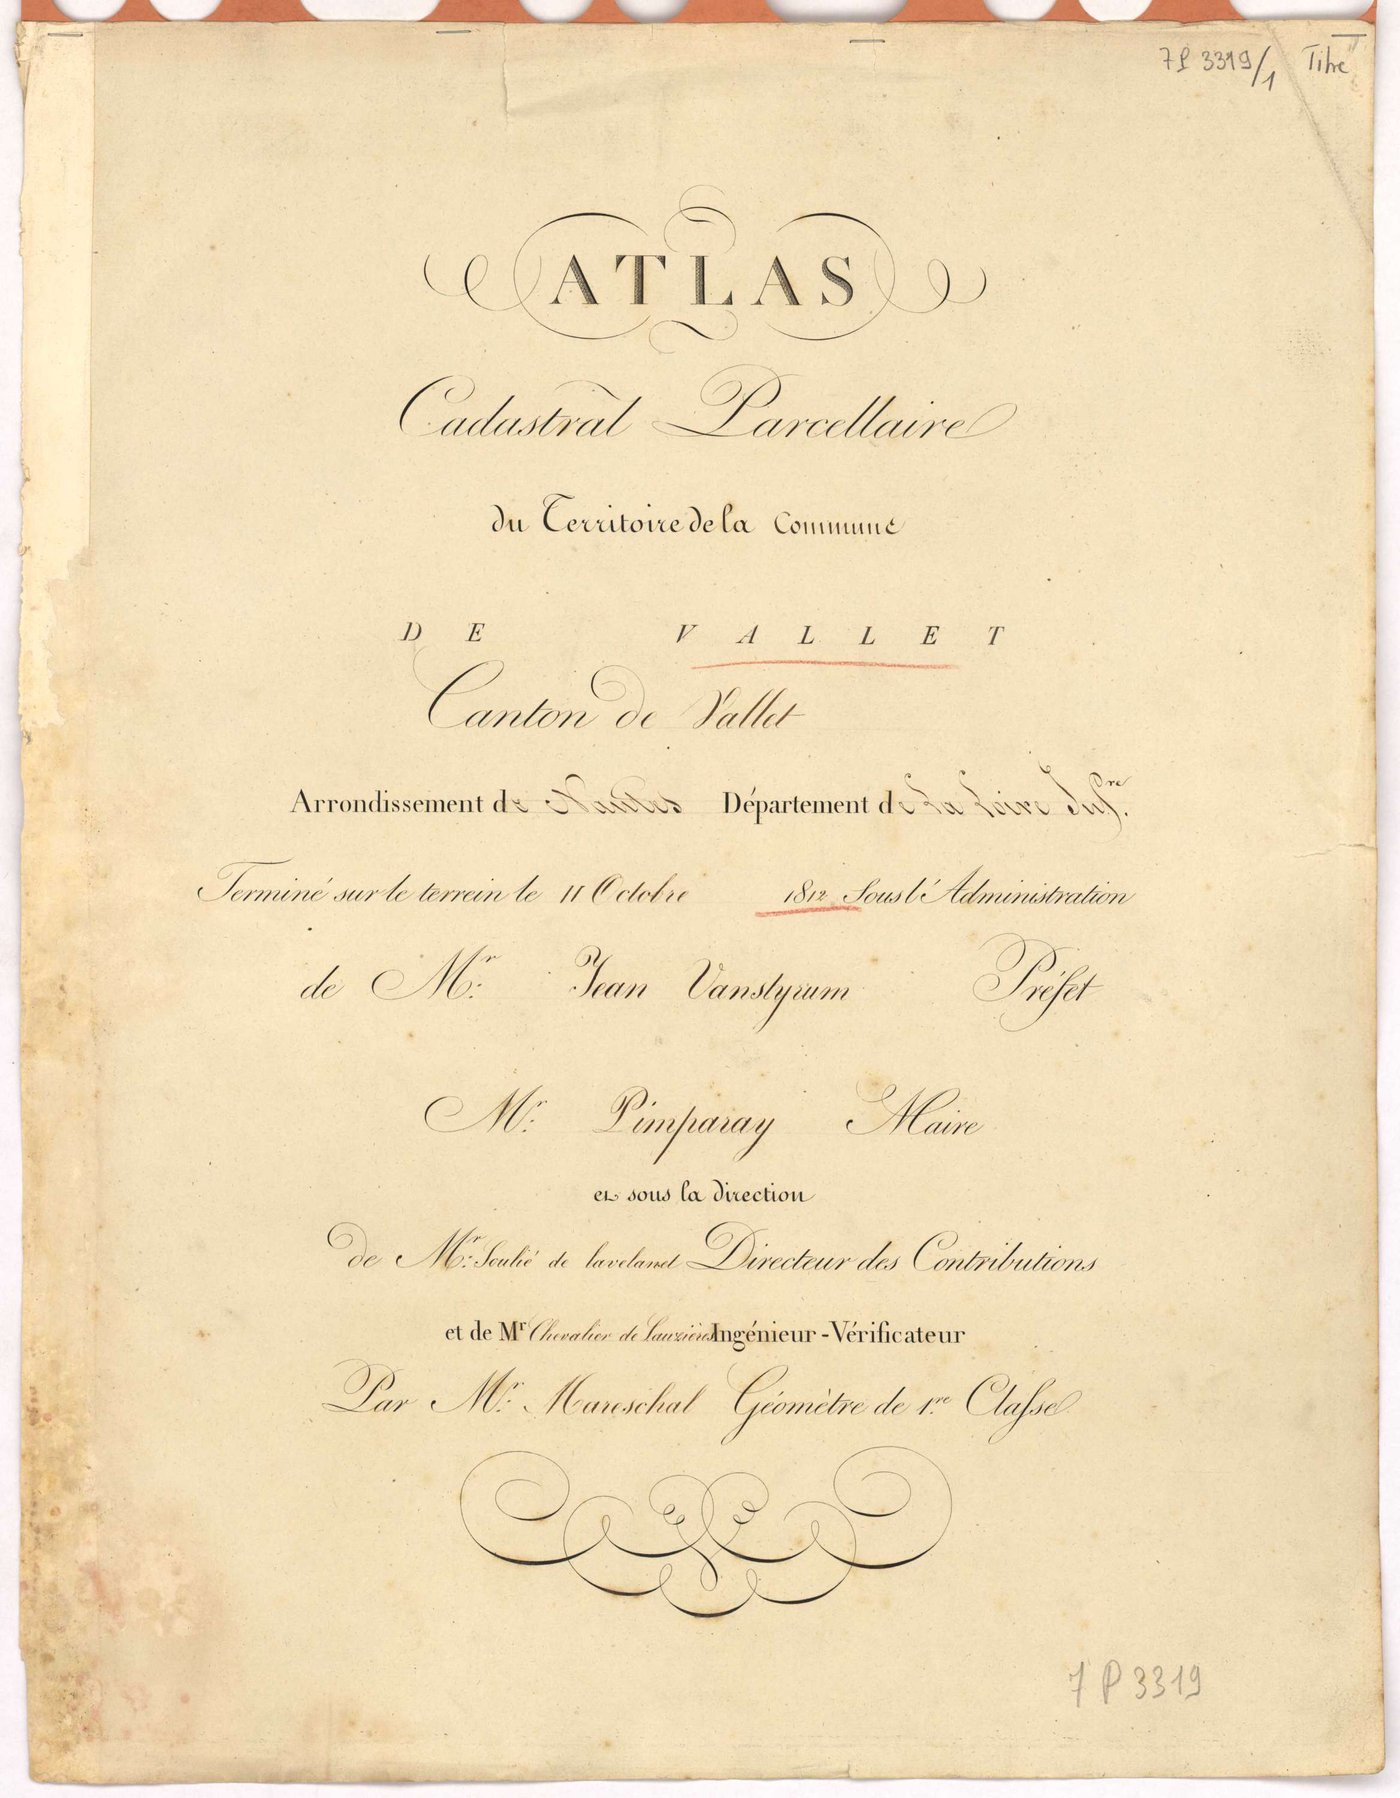 7P 3319/1 Titre
ATLAS
Cadastral Parcellaire
du Territoire de la Commune
DE VALLET
Canton de Vallet
Arrondissement de Nantes Département de La Loire Infre.
Terminé sur le terrein le 11 Octobre 1812 Sous l'Administration
de Mr. Jean Vanstyrum Préfet
Mr. Pimparay Maire
et sous la direction
de Mr. Soulié de lavelanet Directeur des Contributions
et de Mr Chevalier de Lauzières Ingénieur-Vérificateur
Par Mr. Mareschal Géomètre de 1.re Classe
7 P 3319